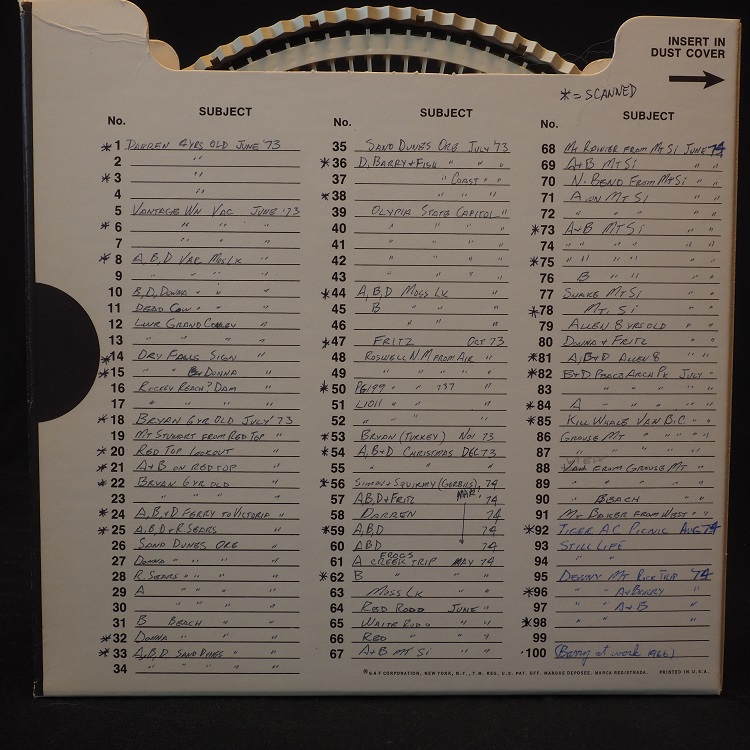 INSERT IN
DUST COVER
* = SCANNED
No. SUBJECT
* 1 DARREN 4YRS OLD JUNE '73
2 "
* 3 "
4 "
5 VANTAGE WN VAC JUNE '73
* 6 " " " "
7 " " "
* 8 A, B, D VAR. MOSLK "
9 " " " "
10 B, D, DONNA " " "
11 DEAD COW " " "
12 LWR GRAND COULEY "
13 " " " "
* 14 DRY FALLS SIGN "
* 15 " " B+DONNA "
16 ROCKEY REACH? DAM "
17 " " " "
* 18 BRYAN 6YR OLD JULY '73
19 MT STUWART FROM RED TOP "
* 20 RED TOP LOOKOUT "
* 21 A+B ON RED TOP "
* 22 BRYAN 6YR OLD "
23 " " " "
* 24 A, B+D FERRY TO VICTORIA "
* 25 A, B, D + R. SEARS " "
26 SAND DUNES ORE "
27 DONNA " " "
28 R. SEARS " " "
29 A " " "
30 " " "
31 B BEACH " "
* 32 DONNA " " "
* 33 A, B, D SAND DUNES " "
34 " " "
No. SUBJECT
35 SAND DUNES ORE JULY '73
* 36 D, BARRY + FISH " " "
37 " COAST " "
* 38 " " "
39 OLYPIA STATE CAPITOL "
40 " " " "
41 " " " "
42 " " " "
43 " " " "
* 44 A, B, D MOSS LK "
45 B " " "
46 " " "
* 47 FRITZ OCT 73
48 ROSWELL N M FROM AIR "
49 " " " " "
* 50 PG199 " " 737 "
51 L1011 " " "
52 " " "
* 53 BRYAN (TURKEY) NOV 73
* 54 A, B+D CHRISTMAS DEC 73
55 " " "
* 56 SIMON + SQUIRMY (GERBILS) 74
57 A, B, D + FRITZ MAR. 74
58 DARREN 74
* 59 A, B, D 74
60 ABD 74
61 A FROGS CREEK TRIP MAY 74
* 62 B " " "
63 MOSS LK " "
64 RED RODO JUNE "
65 WHITE RODO " "
66 RED " " "
67 A+B MT SI " "
No. SUBJECT
68 MT RAINIER FROM MT SI JUNE 74
69 A+B MT SI " "
70 N. BEND FROM MT SI " "
71 A ON MT SI " "
72 " " " "
* 73 A+B MT SI " "
74 " " " " "
* 75 " " " " "
76 B " " " "
77 SNAKE MT SI " "
* 78 MT. SI " "
79 ALLEN 8 YRS OLD " "
80 DONNA + FRITZ " "
* 81 A, B+D ALLEN 8 " "
* 82 B+D PEACE ARCH PK JULY "
83 " " " "
* 84 A " " "
* 85 KILL WHALE VAN B.C. " "
86 GROUSE MT " " " "
87 " " " "
88 VIEW FROM GROUSE MT "
89 " " " "
90 " BEACH " "
91 MT BAKER FROM WEST " "
* 92 TIGER A C PICNIC AUG 74
93 STILL LIFE "
94
95 DENNY MT ROCK TRIP '74
* 96 " " A+BARRY "
97 " " A+B "
* 98 " " " "
99
100 (Barry at work 1966)
© GAF CORPORATION, NEW YORK, N.Y., T.M. REG. U.S. PAT. OFF. MARQUE DEPOSEE. MARCA REGISTRADA. PRINTED IN U.S.A.